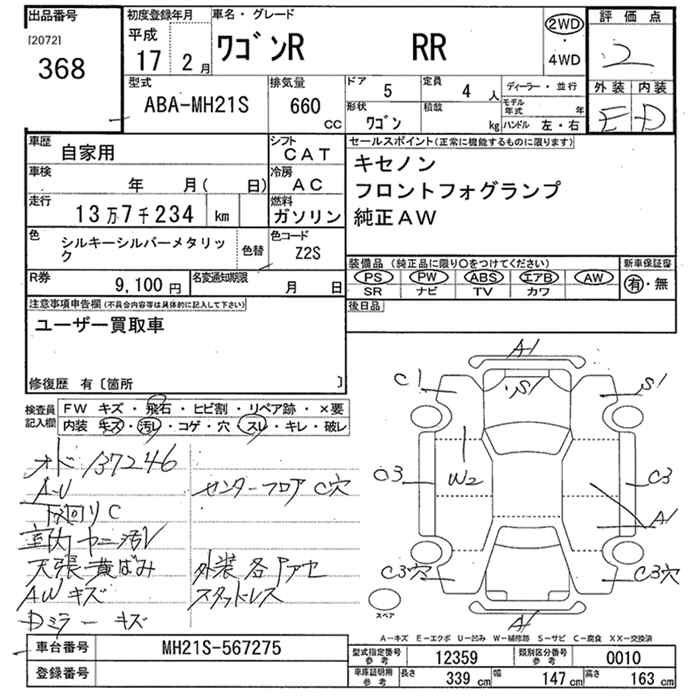 出品番号
[2072]
368
初度登録年月
平成
17 2月
車名・グレード
ワゴンR RR
2WD
・
4WD
評価点
2
外装 内装
E D
型式
ABA-MH21S
排気量
660
cc
ドア
5
定員
4人
形状
ワゴン
積載
kg
ディーラー・並行
モデル年式 年
ハンドル 左・右
車歴
自家用
シフト
CAT
車検
年 月( 日)
冷房
AC
走行
13万7千234 km
燃料
ガソリン
色
シルキーシルバーメタリッ
ク
色替
色コード
Z2S
R券
9,100円
名変通知期限
月 日
セールスポイント(正常に機能するものに限ります)
キセノン
フロントフォグランプ
純正AW
装備品(純正品に限り〇をつけてください)
新車保証書
PS PW ABS エアB AW
SR ナビ TV カワ
有・無
後日品
注意事項申告欄(不具合内容等は具体的に記入して下さい)
ユーザー買取車
修復歴 有〔箇所 〕
検査員
記入欄
FW キズ・飛石・ヒビ割・リペア跡・×要
内装 キズ・汚レ・コゲ・穴・スレ・キレ・破レ
オド 137246
A-U
センターフロア C穴
下回りC
室内 ヤニ汚レ
天張 黄ばみ
外装 各アセ
AWキズ
スタッドレス
Dミラーキズ
A1
C1
S1
S1
C3
W2
C3
A1
C3穴
C3穴
A1
スペア
A-キズ E-エクボ U-凹み W-補修跡 S-サビ C-腐食 XX-交換済
車台番号
MH21S-567275
登録番号
型式指定番号
参考
12359
類別区分番号
参考
0010
車庫証明用
参考
長さ
339 cm
幅
147 cm
高さ
163 cm